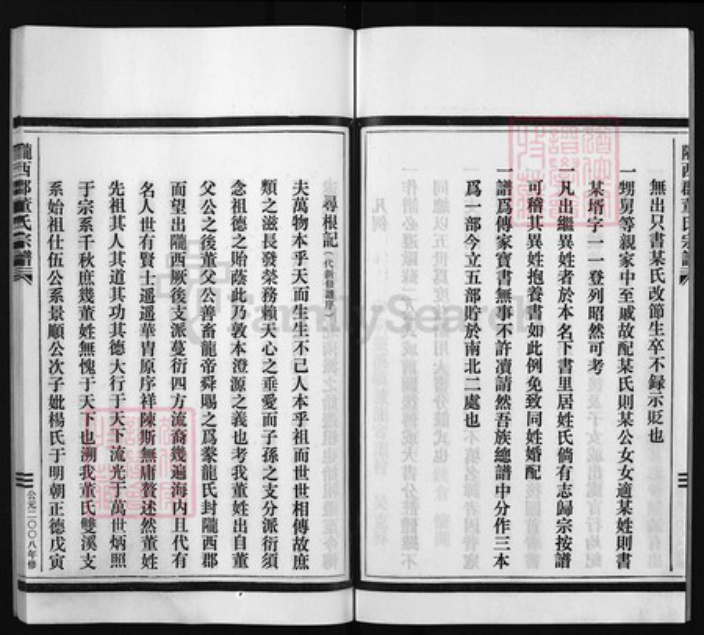 隴西郡董氏宗譜
無出只書某氏改節生卒不録示貶也
一甥舅等親家中至戚故配某氏則某公女女適某姓則書
某壻字一一登列昭然可考
一凡出繼異姓者於本名下書里居姓氏倘有志歸宗按譜
可稽其異姓抱養書如此例免致同姓婚配
一譜爲傳家寶書無事不許凟請然吾族總譜中分作三本
爲一部今立五部貯於南北二處也
尋根記（代新修譜序）
夫萬物本乎天而生生不已人本乎祖而世世相傳故庶
類之滋長發榮務賴天心之垂愛而子孫之支分派衍須
念祖德之貽蔭此乃敦本澄源之義也考我董姓出自董
父公之後董父公善畜龍帝舜賜之爲豢龍氏封隴西郡
而望出隴西厥後支派蔓衍四方流裔幾遍海内且代有
名人世有賢士遥遥華胄原序祥陳斯無庸贅述然董姓
先祖其人其道其功其德大行于天下流光于萬世炳照
于宗系千秋庶幾董姓無愧于天下也溯我董氏雙溪支
系始祖仕伍公系景順公次子妣楊氏于明朝正德戊寅
隴西郡董氏宗譜
公元二〇〇八年修
FamilySearch